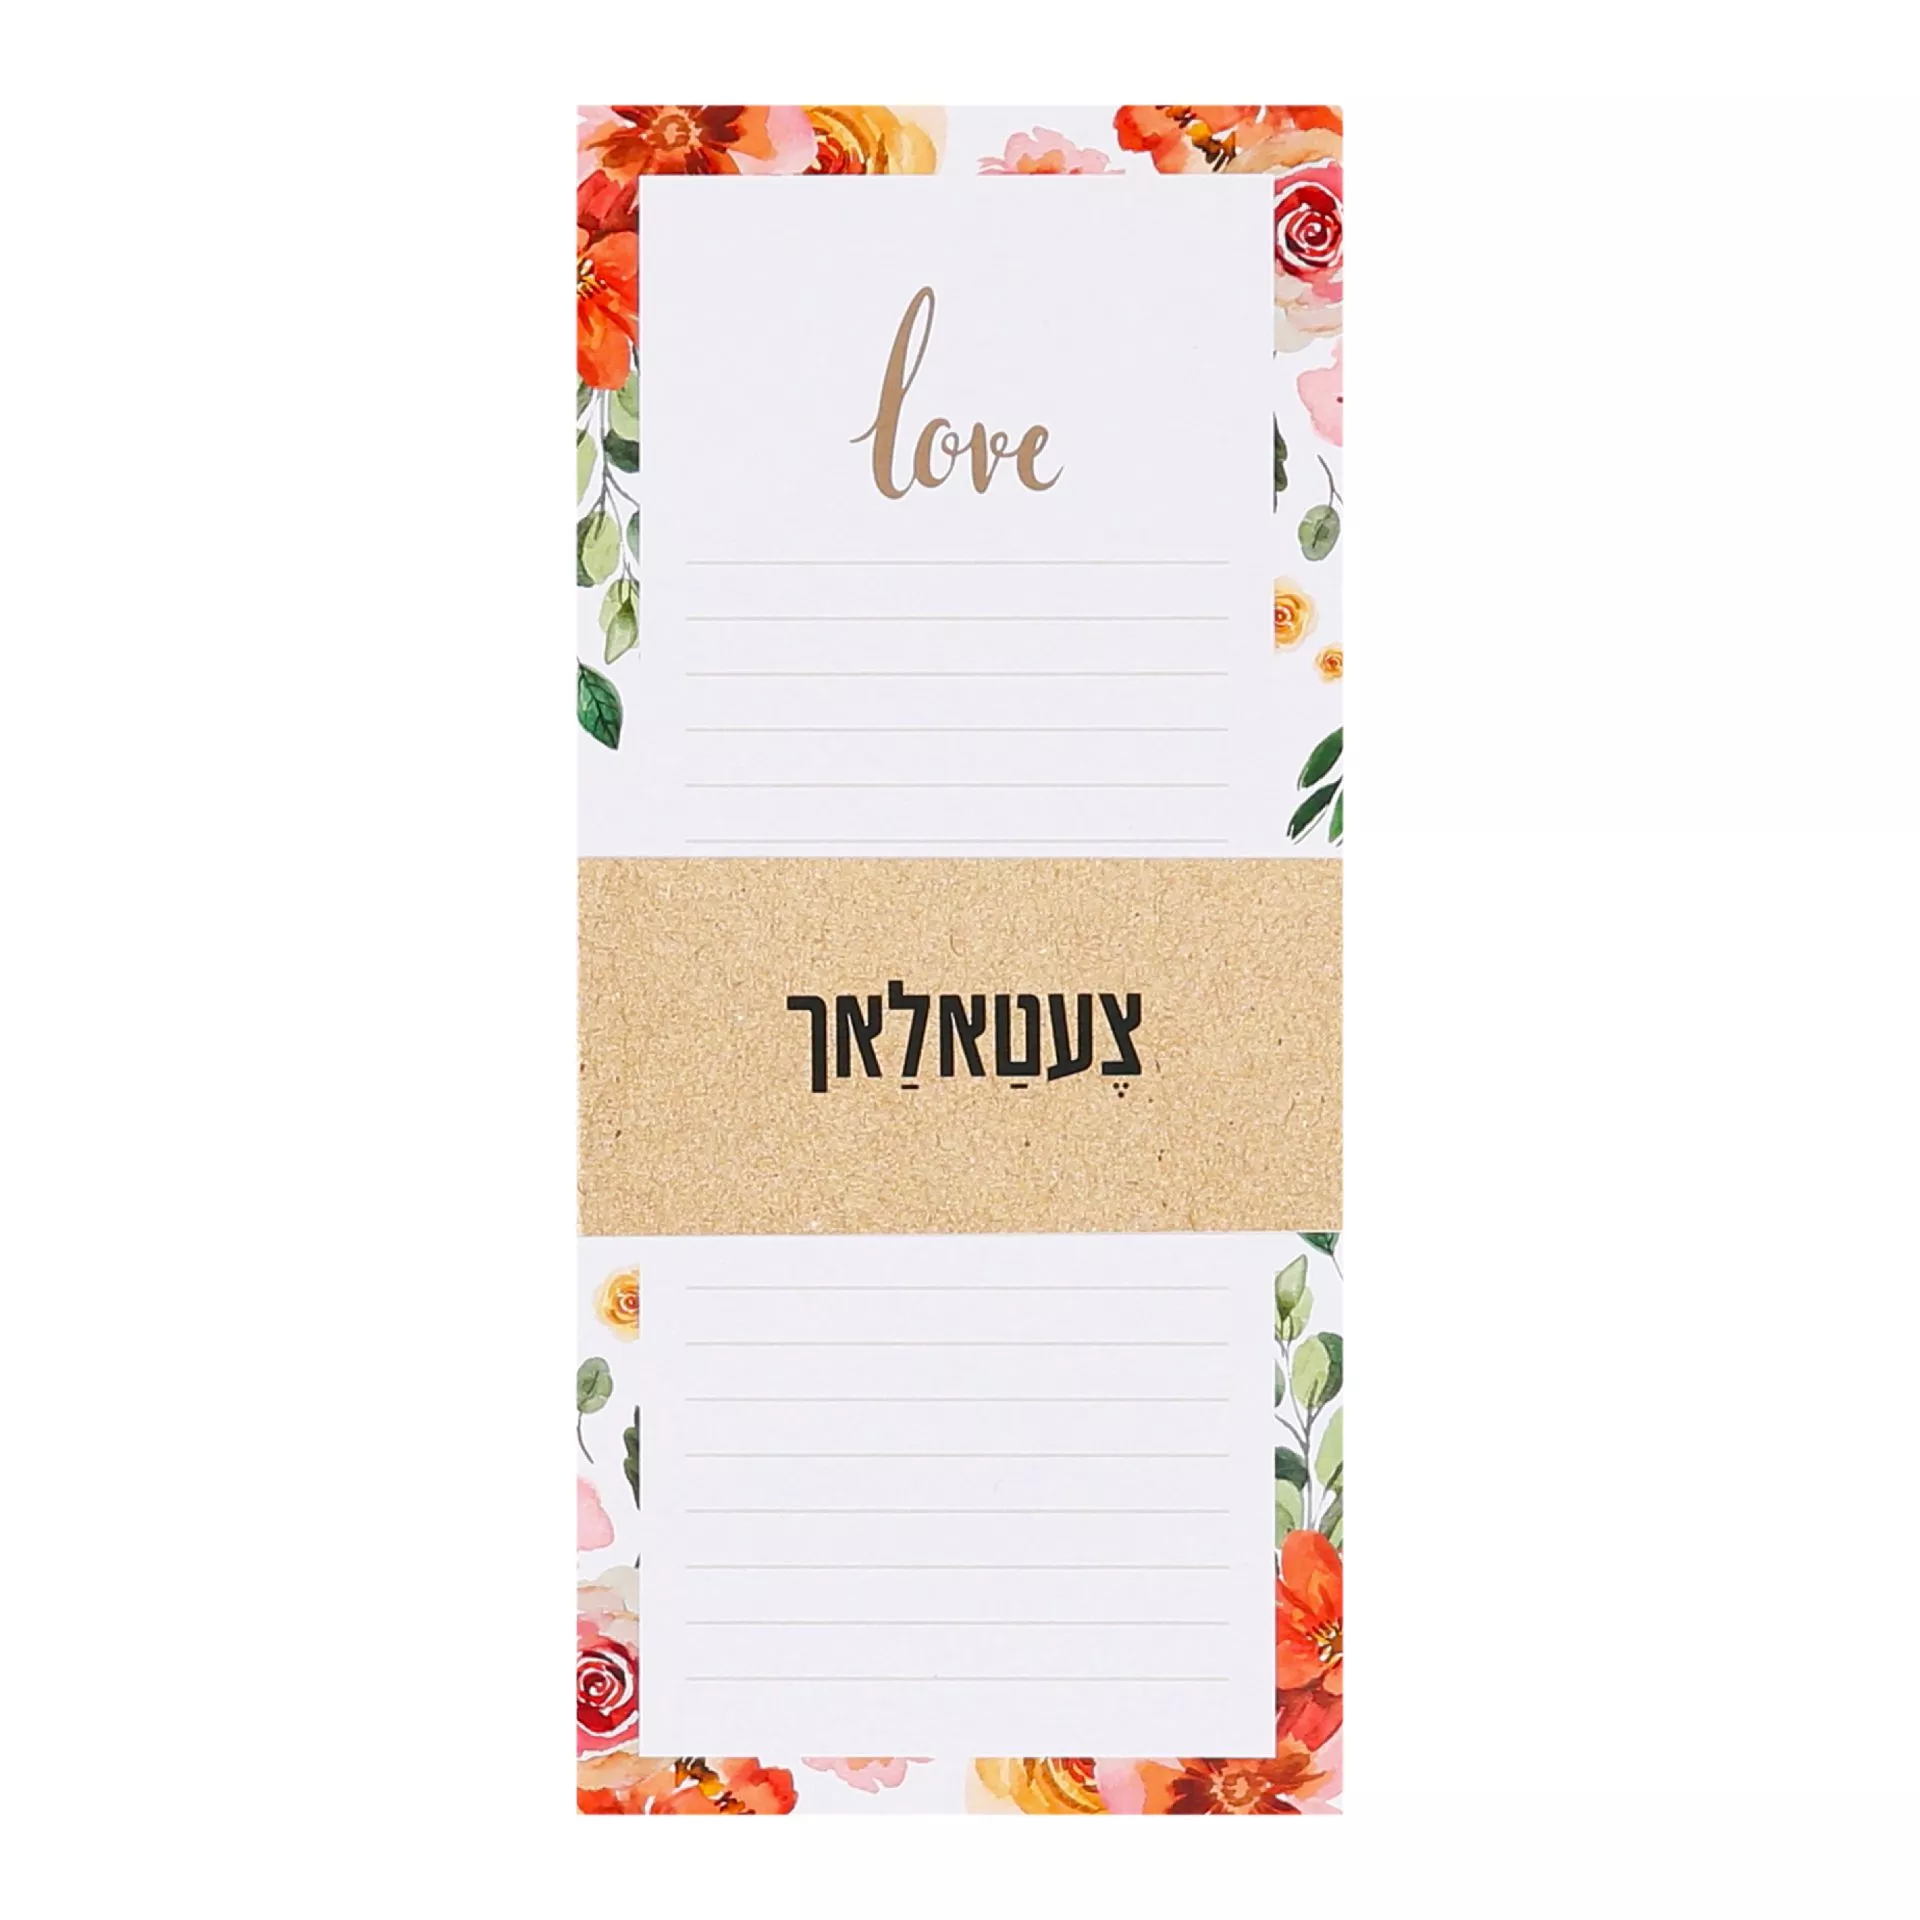 love
צֶעטַאלַאך